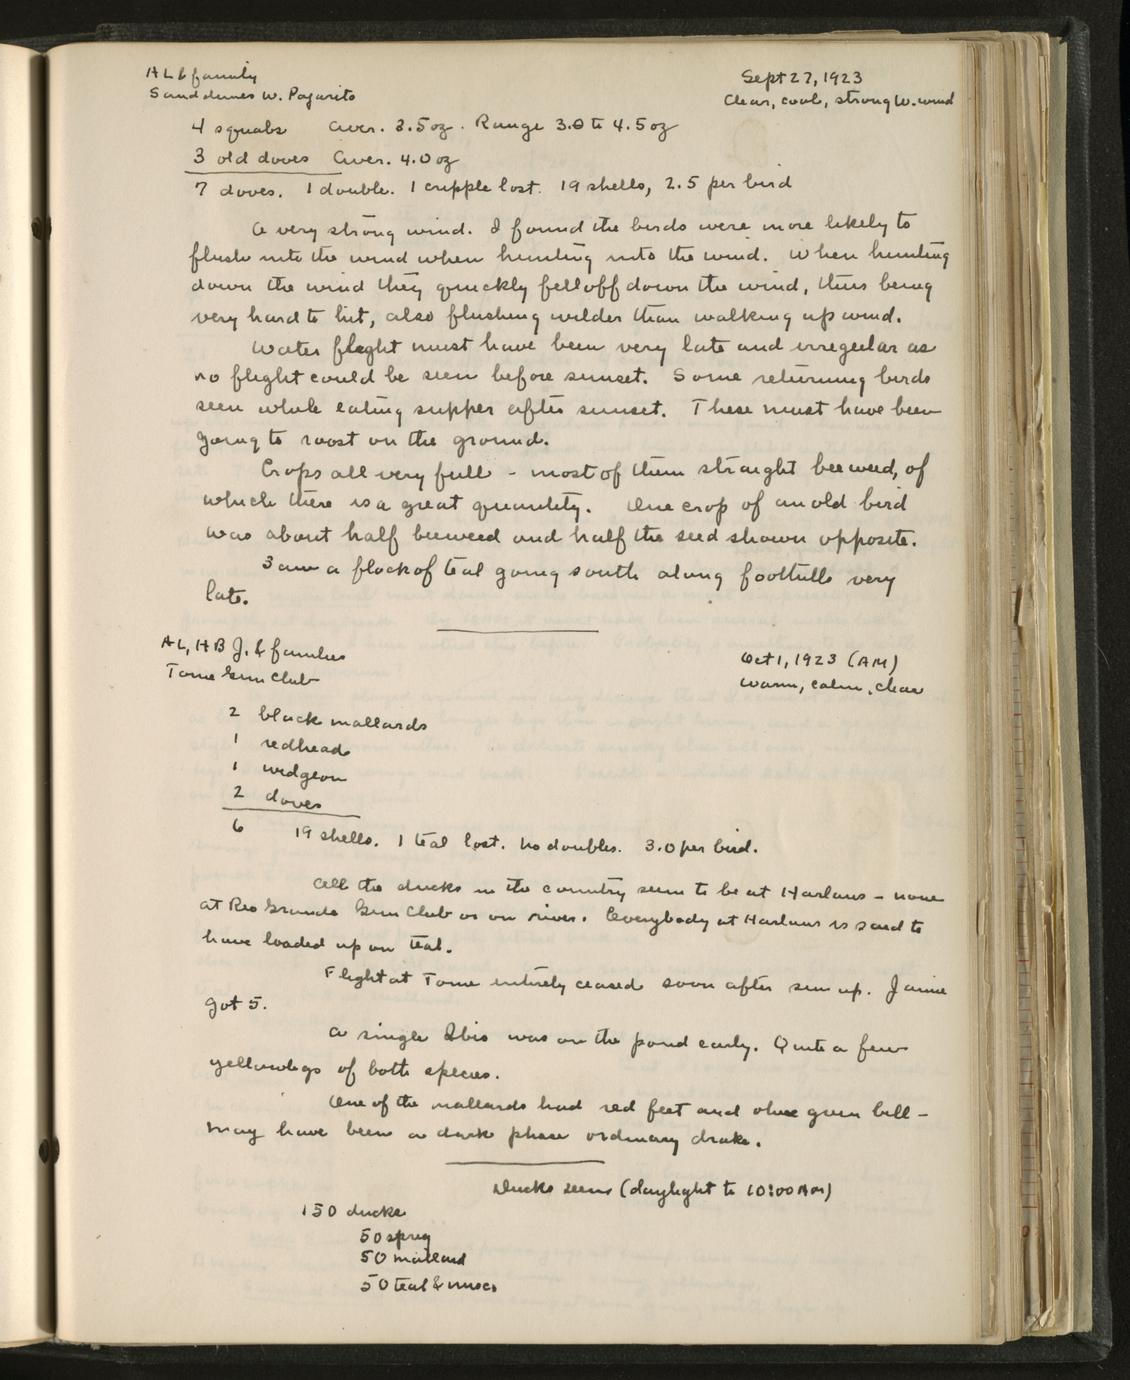 AL & family
Sand dunes W. Pajarito
Sept 27, 1923
Clear, cool, strong W. wind
4 squabs Aver. 3.5 oz. Range 3.0 to 4.5 oz
3 old doves Aver. 4.0 oz
7 doves. 1 double. 1 cripple lost. 19 shells, 2.5 per bird
A very strong wind. I found the birds were more likely to
flush into the wind when hunting into the wind. When hunting
down the wind they quickly fell off down the wind, thus being
very hard to hit, also flushing wilder than walking up wind.
Water flight must have been very late and irregular as
no flight could be seen before sunset. Some returning birds
seen while eating supper after sunset. These must have been
going to roost on the ground.
Crops all very full - most of them straight beeweed, of
which there is a great quantity. One crop of an old bird
was about half beeweed and half the seed shown opposite.
Saw a flock of teal going south along foothills very
late.
AL, HB J. & families
Tome Gun Club
Oct 1, 1923 (AM)
Warm, calm, clear
2 black mallards
1 redhead
1 widgeon
2 doves
6 19 shells. 1 teal lost. No doubles. 3.0 per bird.
All the ducks in the country seem to be at Harlans - none
at Rio Grande Gun Club or on river. Everybody at Harlans is said to
have loaded up on teal.
Flight at Tome entirely ceased soon after sun up. Jamie
got 5.
A single Ibis was on the pond early. Quite a few
yellowlegs of both species.
One of the mallards had red feet and olive green bill -
may have been a dark phase ordinary drake.
Ducks seen (daylight to 10:00 AM)
150 ducks
50 sprig
50 mallard
50 teal & miscs